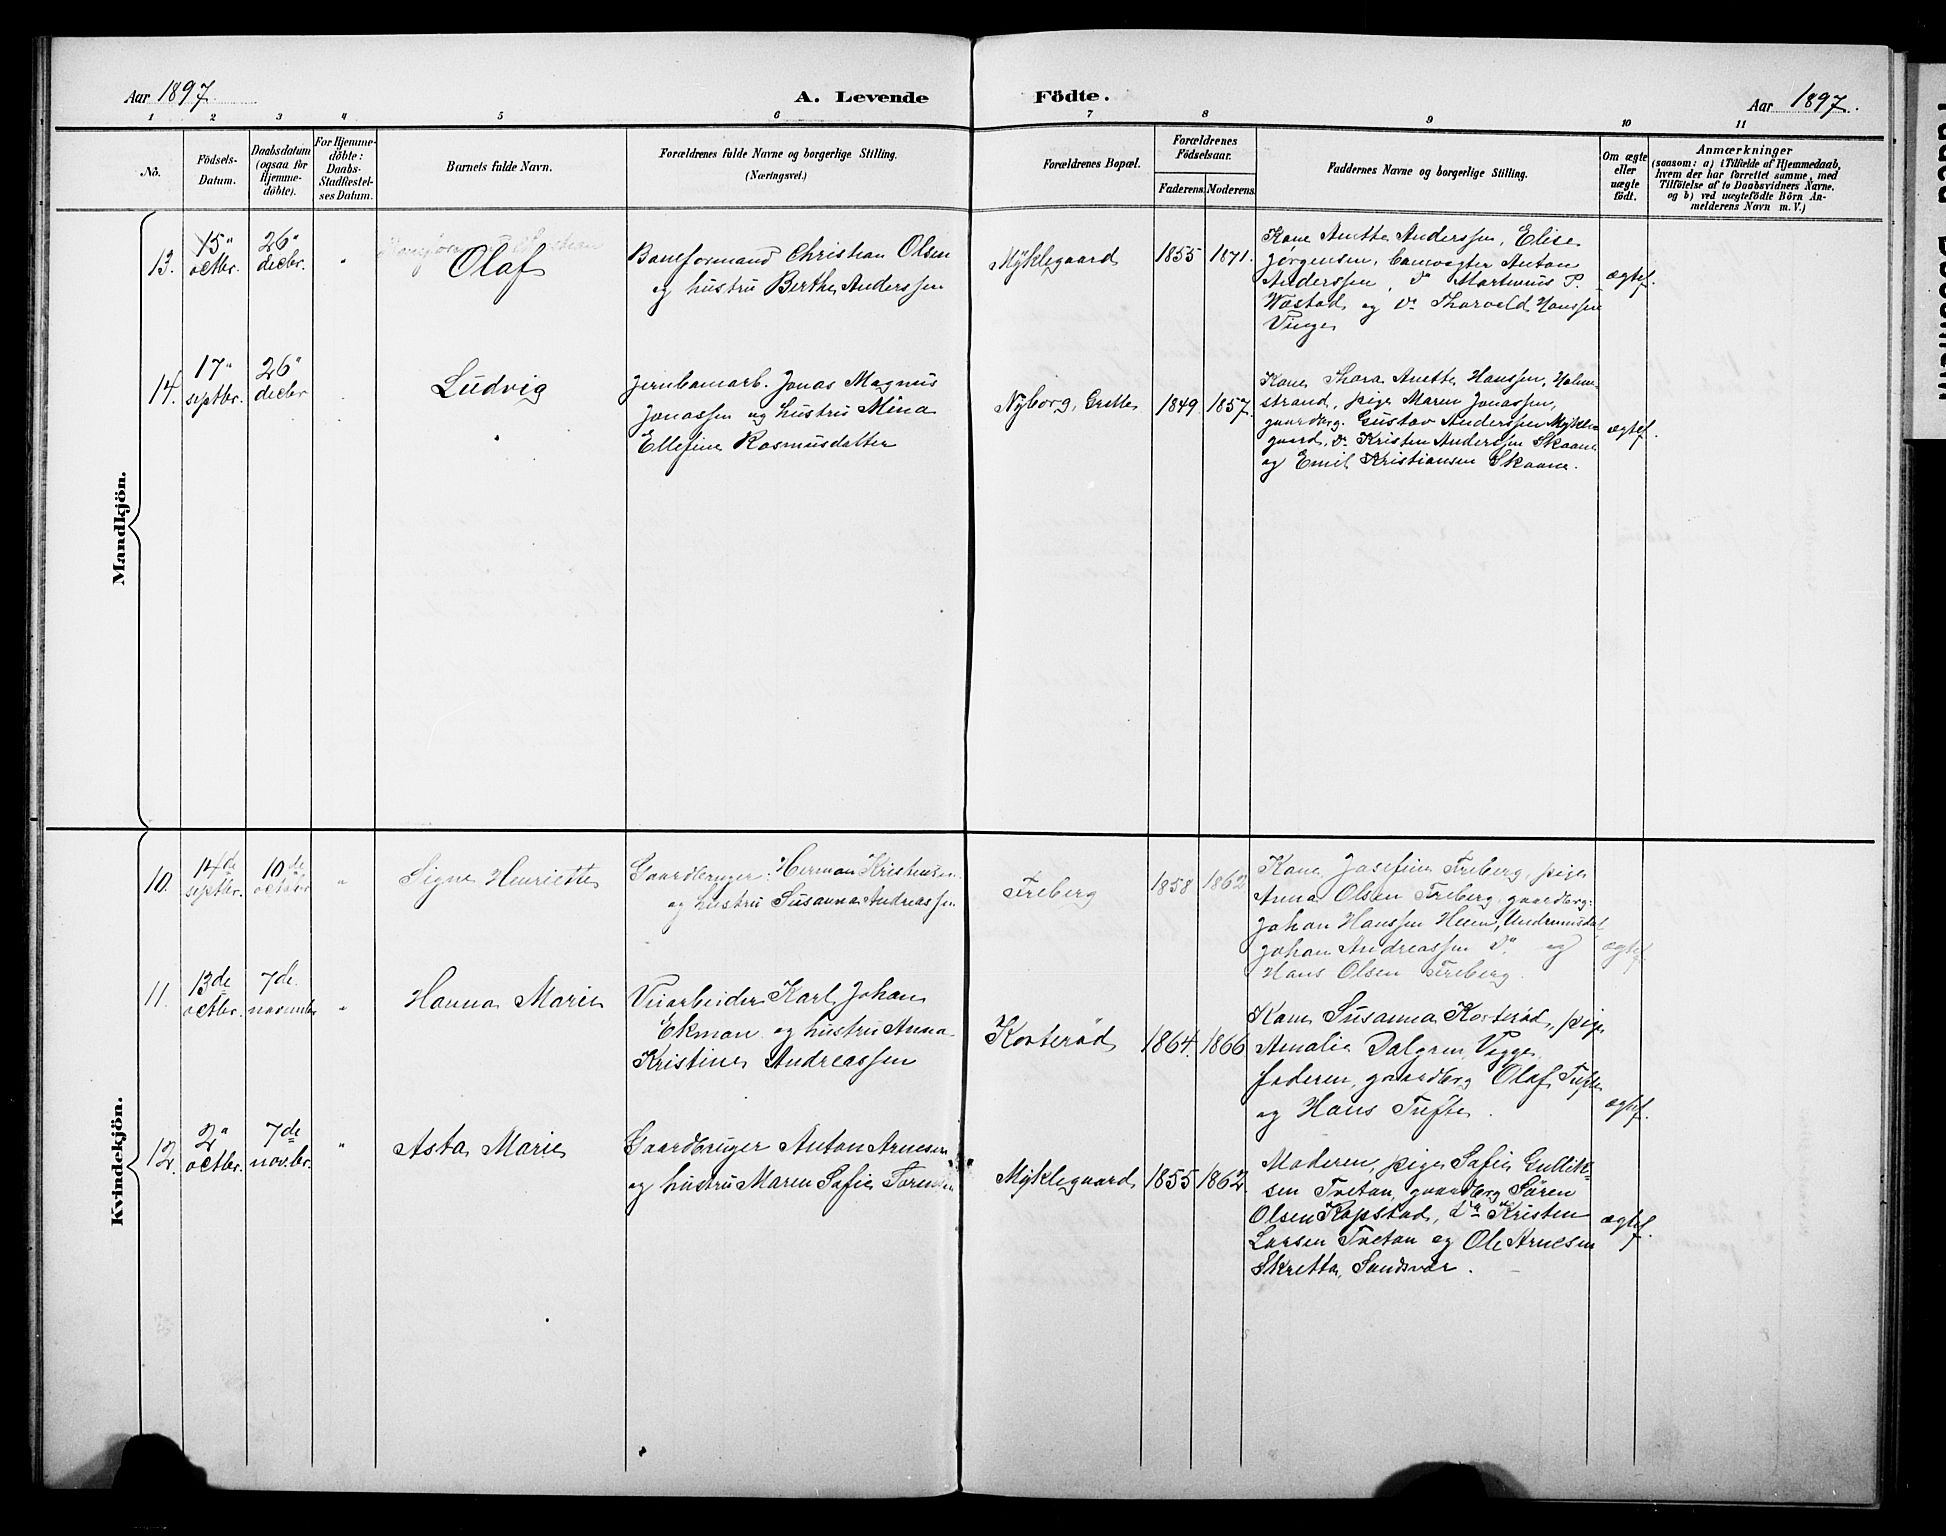 Aar 1897.
A. Levende Födte.
Aar 1897.
1 2 3 4 5 6 7 8 9 10 11
No.
Födsels-Datum.
Daabsdatum (ogsaa for Hjemme-döbte).
For Hjemme-döbte: Daabs-Stadfæstel-ses Datum.
Barnets fulde Navn.
Forældrenes fulde Navne og borgerlige Stilling.
(Næringsvei.)
Forældrenes Bopæl.
Forældrenes Födselsaar.
Faderens. Moderens.
Faddernes Navne og borgerlige Stilling.
Om ægte eller uægte födt.
Anmærkninger
(saasom: a) i Tilfælde af Hjemmedaab,
hvem der har forrettet samme, med
Tilföielse af to Daabsvidners Navne.
og b) ved uægtefödte Börn An-
melderens Navn m. V.)
Mandkjön.
13. 15" octbr. 26" decbr. " Olaf
Baneformand Christian Olsen
og hustru Berthe Anderssen
Myklegaard 1855 1871.
Kone Anette Anderssen, Elise
Jörgensen, banevogter Anton
Anderssen, do Martinius P.
Wæstad og do Thorvald Hanssen
Vinge
ægtef.
14. 17" septbr. 26" decbr. " Ludvig
Jernbanearb. Jonas Magnus
Jonassen og hustru Mina
Ellefine Rasmusdatter
Nyborg, Grette 1849 1857.
Kone Thora Anette Hanssen, Holm-
strand, pige Maren Jonassen,
gaardbrg. Gustav Anderssen Mykle-
gaard, do Kristen Anderssen Skaane
og Emil Kristiansen Skaane.
ægtef.
Kvindekjön.
10. 14de septbr. 10de octobr " Signe Henriette
Gaardbruger Herman Kristiansen
og hustru Susanna Andreassen
Freberg 1858 1862
Kone Josefine Freberg, pige
Anna Olsen Freberg, gaardbrg:
Johan Hanssen Heim, Undrumsdal
Johan Andreassen do og
Hans Olsen Freberg.
ægtef
11. 13de octbr. 7de november " Hanna Marie
Veiarbeider Karl Johan
Ekman og hustru Anna
Kristine Andreassen
Korterød 1864. 1866
Kone Susanna Korterød, pige
Amalie Dalgren, Vegge,
faderen, gaardbrg Olaf Tufte
og Hans Tufte.
ægtef.
12. 2" octbr. 7de nov.br. " Asta Marie
Gaardbruger Anton Arnesen
og hustru Maren Sofie
Myklegaard 1855 1862.
Moderen, pige Sofie Gullik-
sen Tvetan, gaardbrg Sören
Olsen Kopstad, do Kristen
Larsen Tvetan og Ole Arnesen
Skretta, Sandsvær.
ægtef.